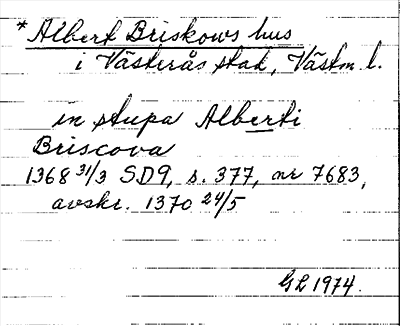 *Albert Briskows hus
i Västerås stad, Västm. l.
in stupa Alberti
Briscova
1368 31/3 SD9, s. 377, nr 7683,
avskr. 1370 24/5
GL 1974.